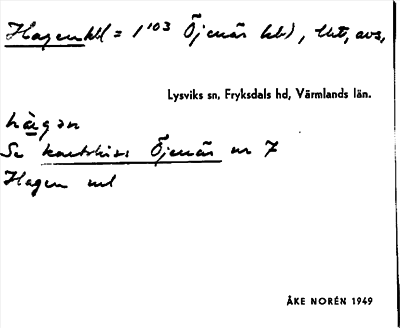 Hagen hl = 1/03 Öjenäs hb), Utt, avs,
Lysviks sn, Fryksdals hd, Värmlands län.
hàgən
Se Öjenäs nr 7
Hagen
ÅKE NORÉN 1949